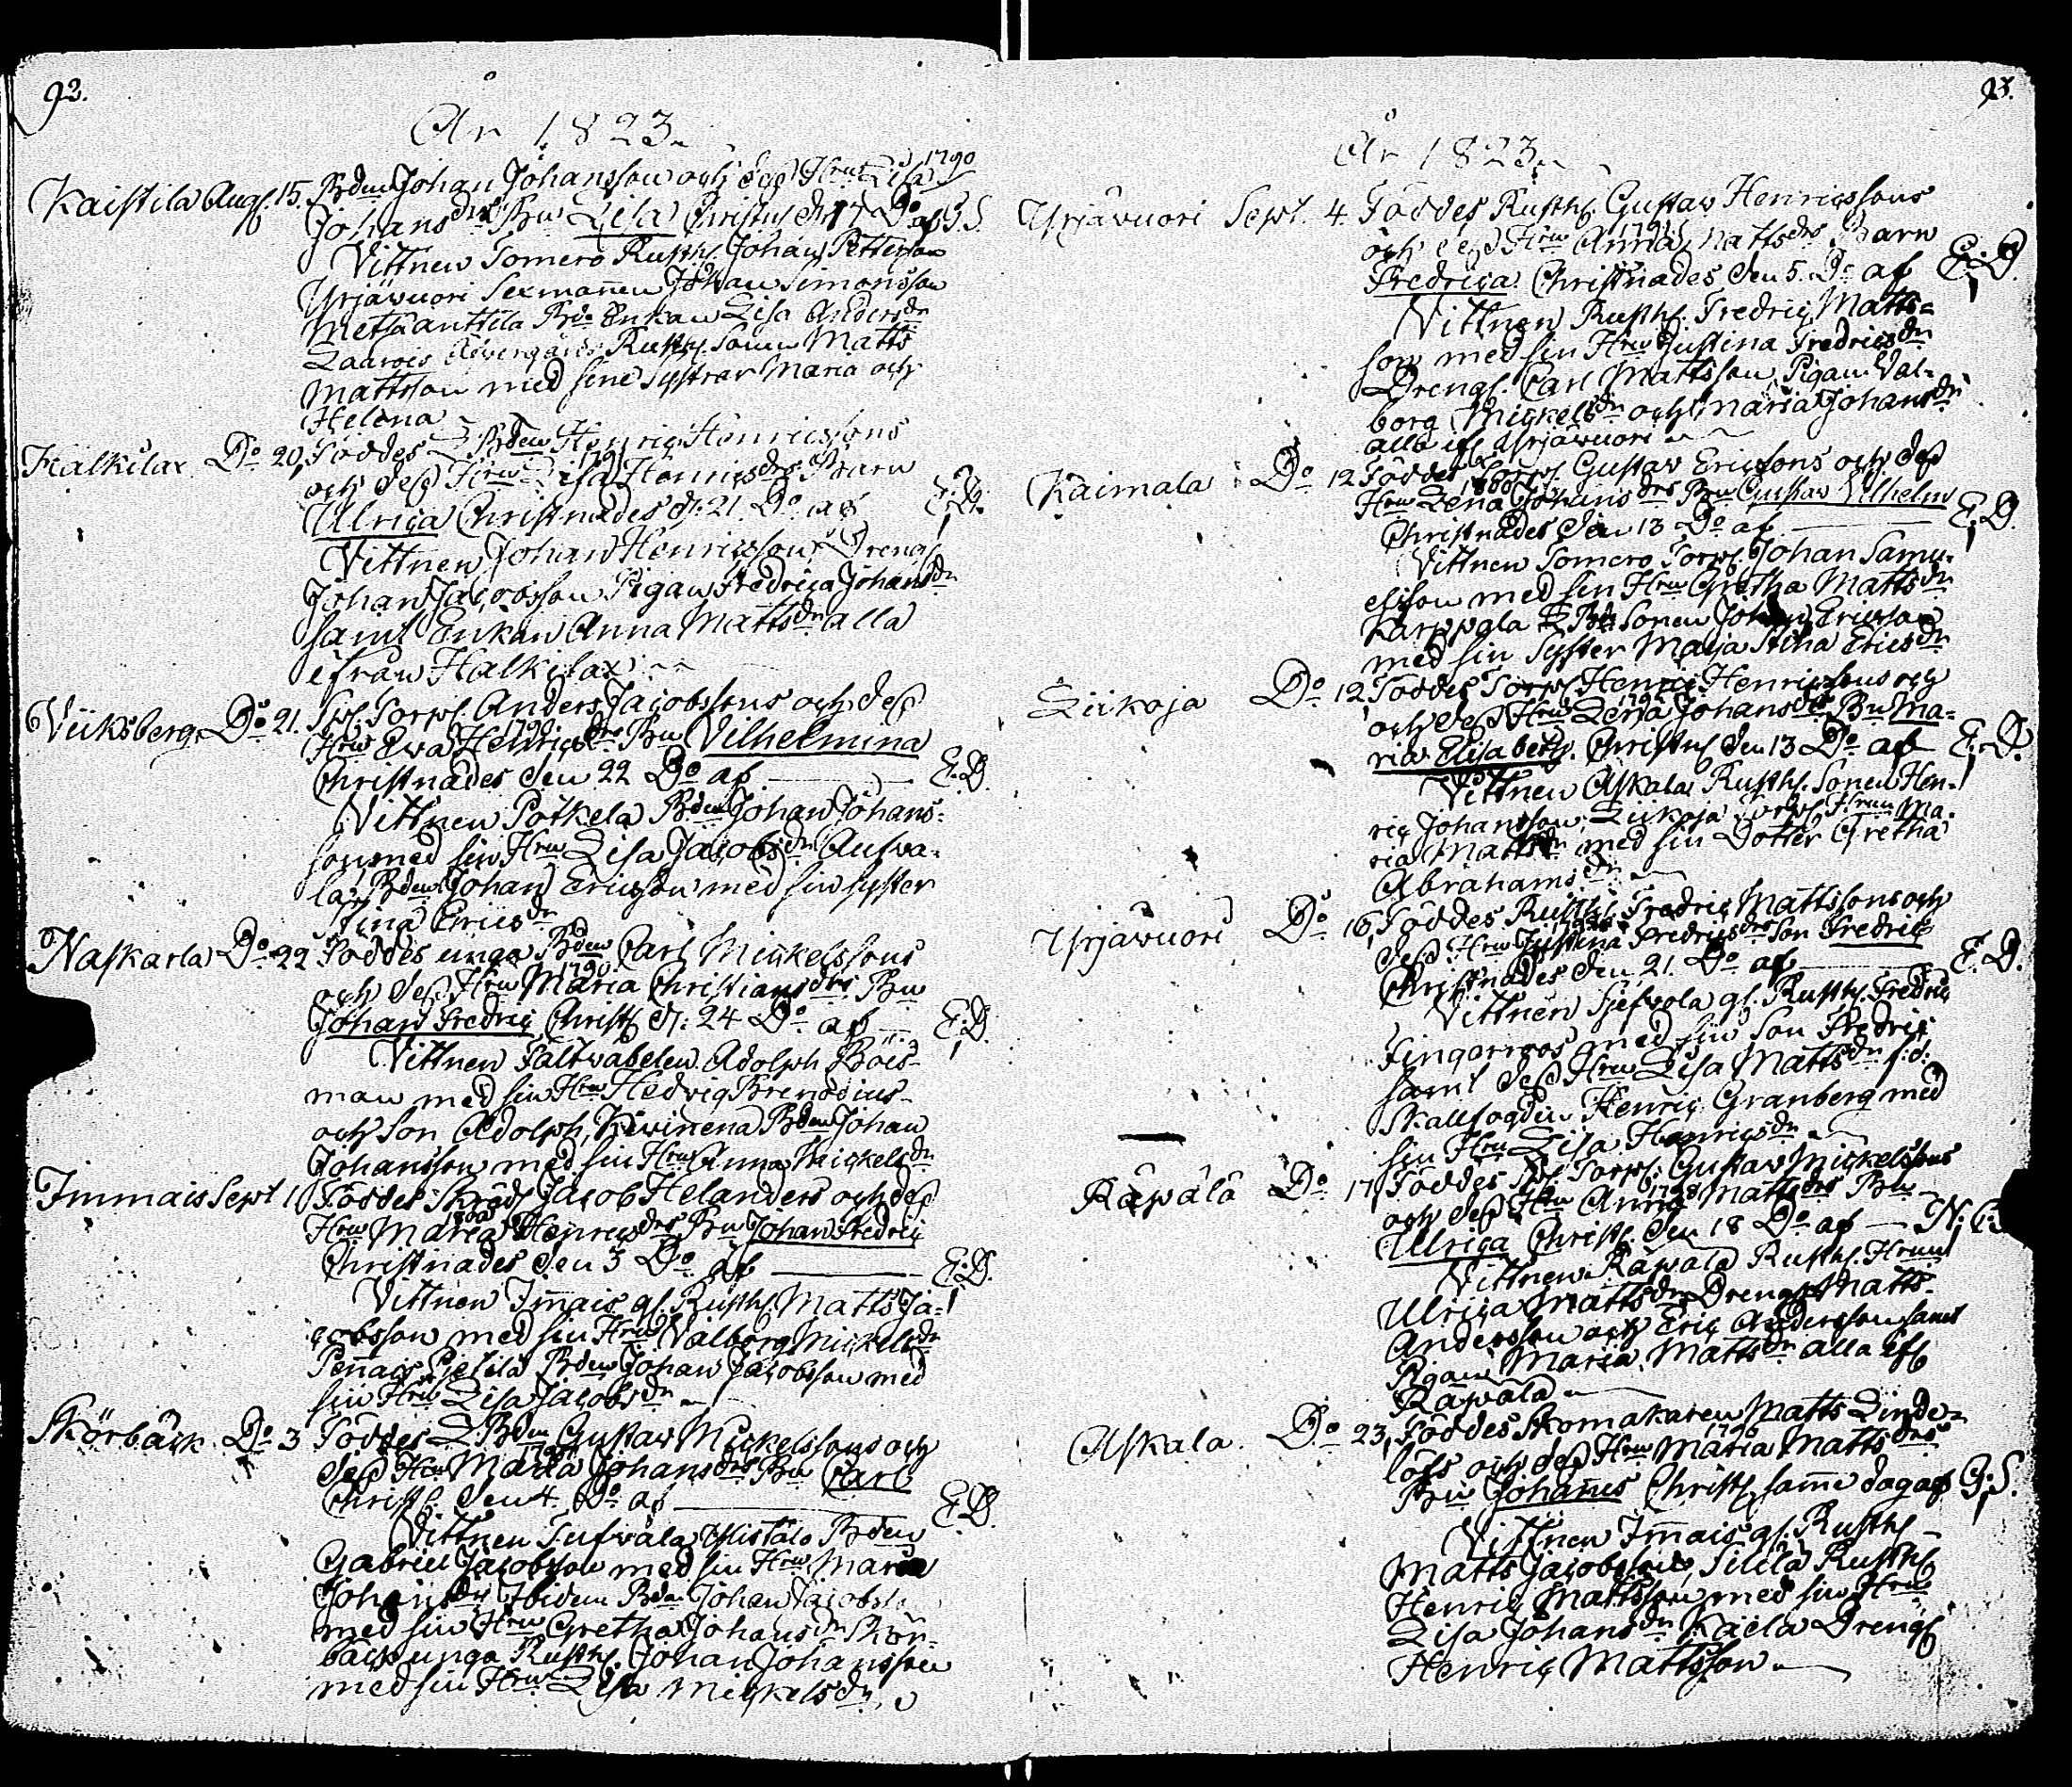 92.
År 1823.
Kaistila Aug. 15. Bden Johan Johanssons och dess Hru Lisa 1790
Johans drs Bn Lisa Christn. den 17 Do af G.S.
Vittnen Somero Rusth. Johan Pettersson
Yrjävuori Sexmannen Johan Simonsson
Metsäanttila Bde Enkan Lisa Anders dr
Laurois Rusth. Sonen Matts
Mattsson med sine Systrar Maria och
Helena
Hälkilax Do 20, Föddes Bden Henric Henricssons
och dess Hru Lisa Henrics drs Barn
Ulrica Christnades d. 21 Do af E.D.
Vittnen Johan Henricsson, Dreng.
Johan Jacobsson Pigan Fredrica Johans dr
samt Enkan Anna Matts dr alla
ifrån Halkilax
Viiksberg Do 21. Torp. Anders Jacobssons och dess
Hru Eva Henrics drs Bn Vilhelmina
Christnades den 22 Do af E.D.
Vittnen Potkela Bden Johan Johans-
son med sin Hru Lisa Jacobs dr Aufva-
la Bden Johan Ericsson med sin syster
Stina Erics dr
Naskarla Do 22 Föddes unga Bden Carl Mickelssons
1790
och dess Hru Maria Christians drs Bn
Johan Fredric Christ. d. 24 Do af E.D.
Vittnen Fältvabelen Adolph Böis-
man med sin Hru Hedvig Brenodius
och Son Adolph, Kivinena Bden Johan
Johansson med sin Hru Anna Mickels dr
Immais Sept 1 Föddes Skräd. Jacob Helanders och dess
Hru Maria Henrics drs Bn Johan Fredric
Christnades den 3 Do af E.D.
Vittnen Immais gl. Rusth. Matts Ja-
cobsson med sin Hru Valborg Mickels dr
Pennais Pietila Bden Johan Jacobsson med
sin Hru Lisa Jacobs dr
Skörbäck Do 3 Föddes Bden Gustav Mickelssons och
dess Hru Maria Johans drs Bn Carl
Christ. den 4 Do af E.D.
Vittnen Sufvala Ylistalo Bden
Gabriel Jacobsson med sin Hru Maria
Johans dr Ibidem Bden Johan Jacobs
med sin Hru Gretha Johans dr Skör-
bäck unga Rusth. Johan Johansson
med sin Hru Lisa Mickels dr
93.
År 1823.
Yrjävuori Sept. 4 Föddes Rusth. Gustav Henricssons
och dess Hru Anna Matts drs Barn
Fredrica Christnades den 5. Do af E.D.
Vittnen Rusth. Fredric Matts-
son med sin Hru Justina Fredrics dr
Drengs. Carl Mattsson, Pigan Val-
borg Mickels dr och Maria Johans dr
alla if. Yrjävuori
Kaimala Do 12 Föddes Torp. Gustav Ericssons och dess
1800
Hru Lena Johans drs Bn Gustav Vilhelm
Christnades den 13 Do af E.D.
Vittnen Somero Torp. Johan Samu-
elsson med sin Hru Gretha Matts dr
Karppala Sonen Johan Ericsson
med sin Syster Maja Stina Erics dr
Liikoja Do 12 Föddes Torp. Henric Henricssons och
och dess Hru Lena Johans drs Bn Ma-
ria Elisabeth. Christn. den 13 Do af E.D.
Vittnen Askala Rusth. Sonen Hen-
ric Johansson, Liikoja Torp. Hrun Ma-
ria Matts dr med sin Dotter Gretha
Abrahams dr
Yrjävuori Do 16, Föddes Rusth. Fredric Mattssons och
dess Hru Justina Fredrics drs Son Fredric
Christnades den 21. Do af E.D.
Vittnen Sjefvola gl. Rusth. Fredric
Fingerroos med sin Son Fredric
samt dess Hru Lisa Matts dr f.d.
Skallfogden Henric Granberg med
sin Hru Lisa Henrics dr
Räpälä Do 17, Föddes Torp. Gustav Mickelssons
och dess Hru Anna Matts drs Bn
Ulrica Christ. den 18 Do af
Vittnen Räpälä Rusth. Hrun
Ulrica Matts dr Drengs. Matts
Andersson och Eric Andersson samt
Pigan Maria Matts dr alla if.
Räpälä
Askala. Do 23, Föddes Skomakaren Matts Linde-
löfs och dess Hru Maria Matts drs
Bn Johannes Christ. samme dag af G.S.
Vittnen Immais gl. Rusth.
Matts Jacobsson, Sillilä Rusth.
Henric Mattsson med sin Hru
Lisa Johans dr Käcla Drengs.
Henric Mattsson